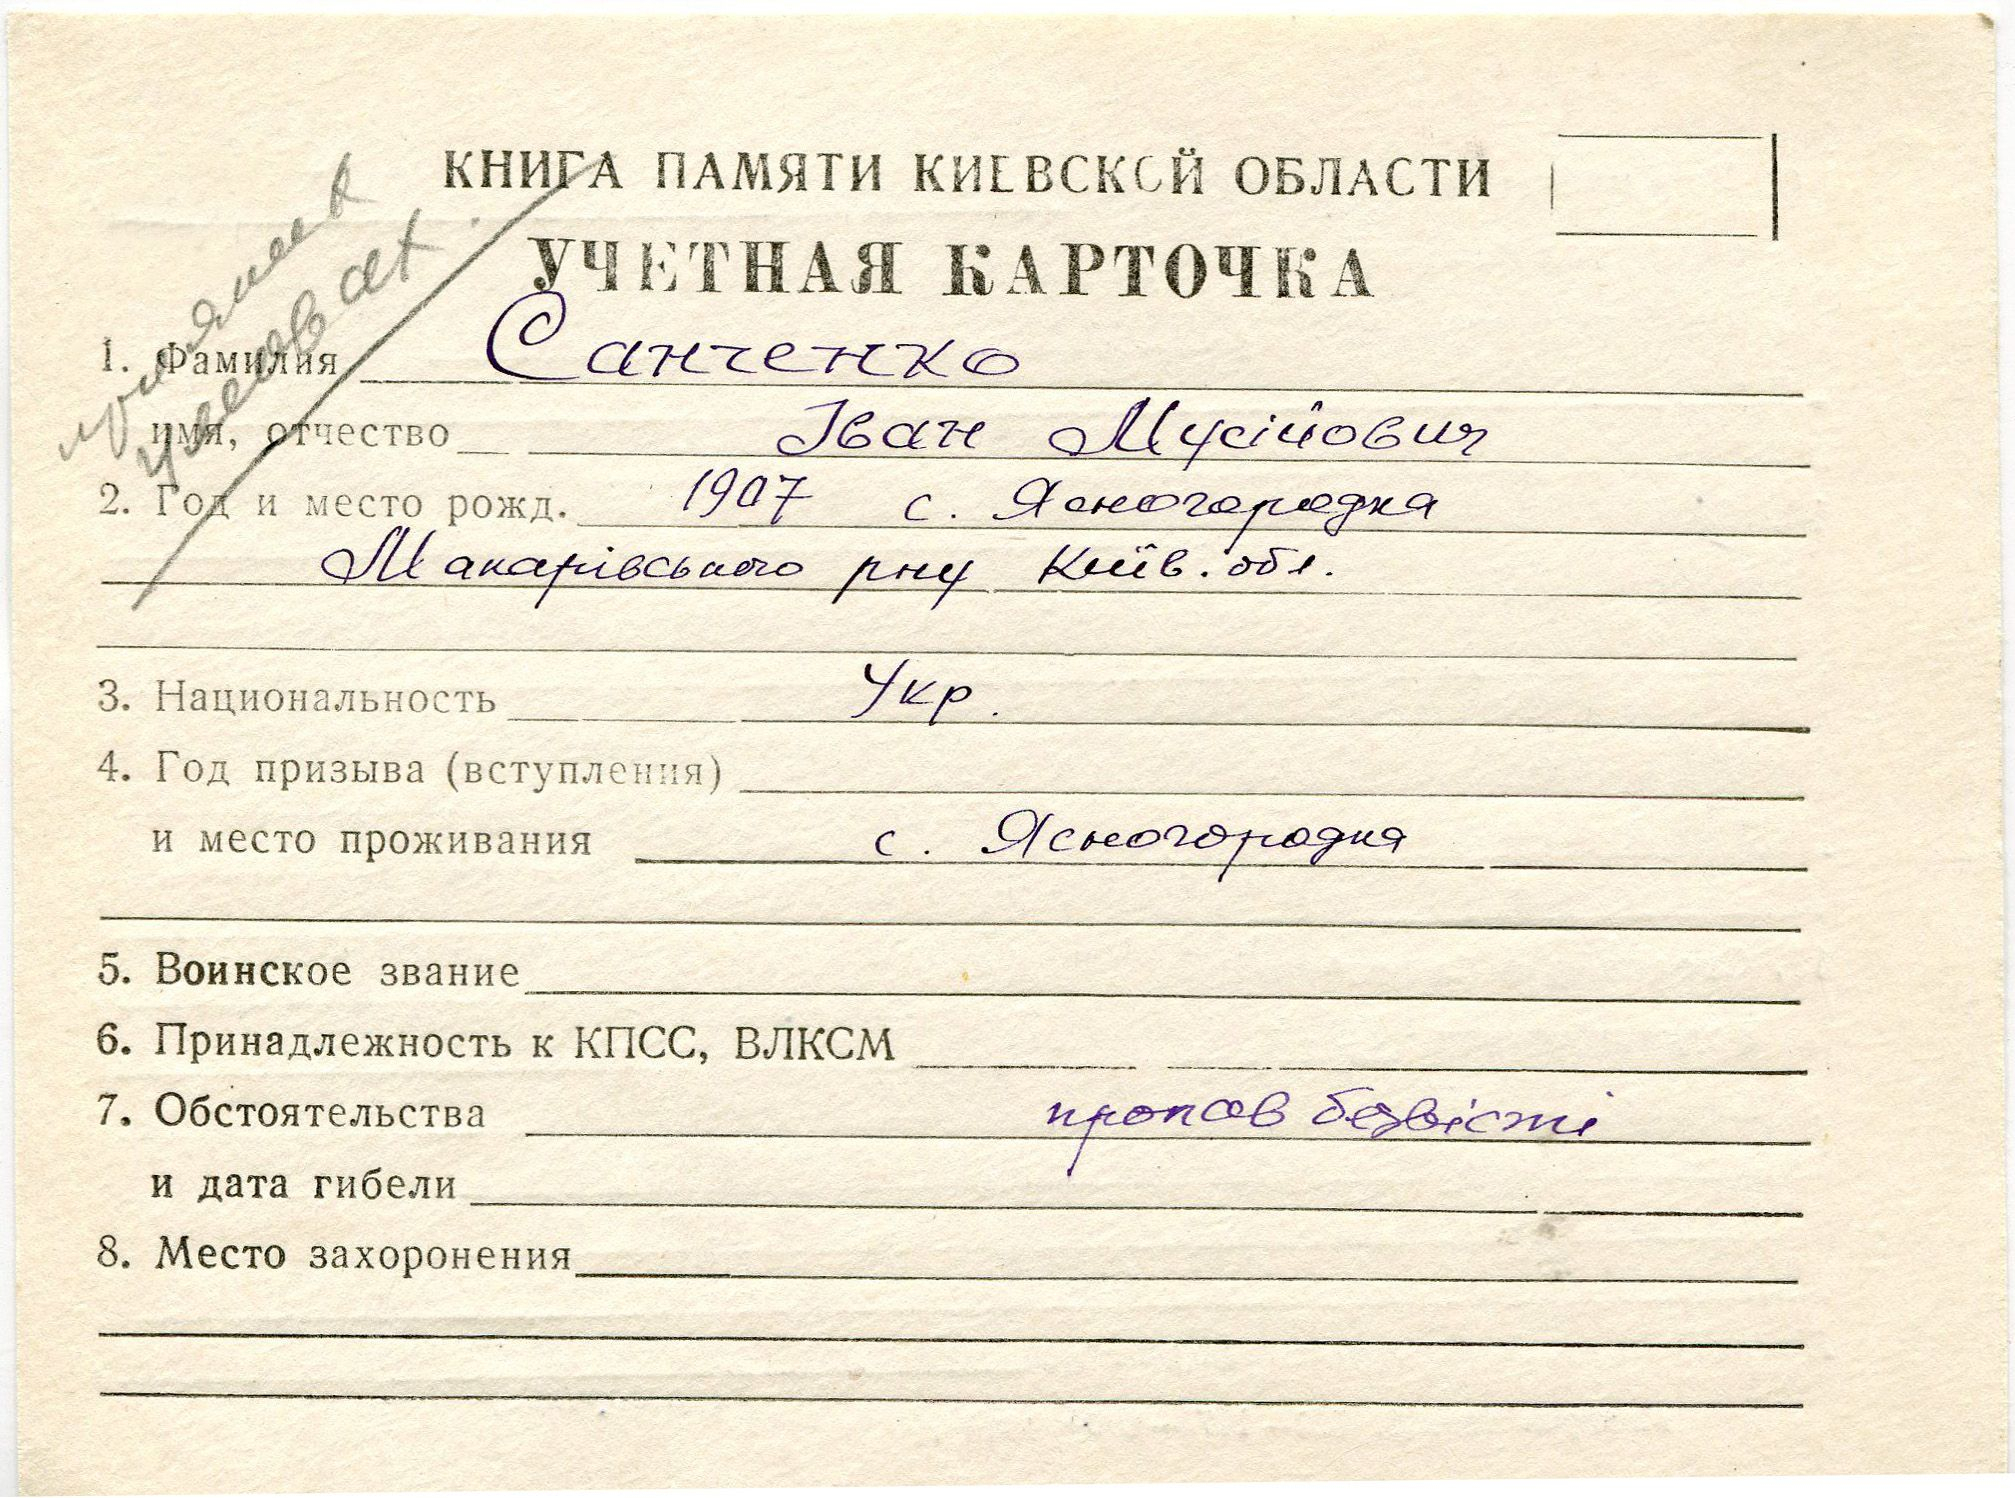 КНИГА ПАМЯТИ КИЕВСКОЙ ОБЛАСТИ
УЧЕТНАЯ КАРТОЧКА
1. Фамилия Санченко
имя, отчество Іван Мусійович
2. Год и место рожд. 1907 с. Ясногородка
Макарівського рну Київ. обл.
3. Национальность Укр.
4. Год призыва (вступления)
и место проживания с. Ясногородка
5. Воинское звание
6. Принадлежность к КПСС, ВЛКСМ
7. Обстоятельства пропав безвісті
и дата гибели
8. Место захоронения